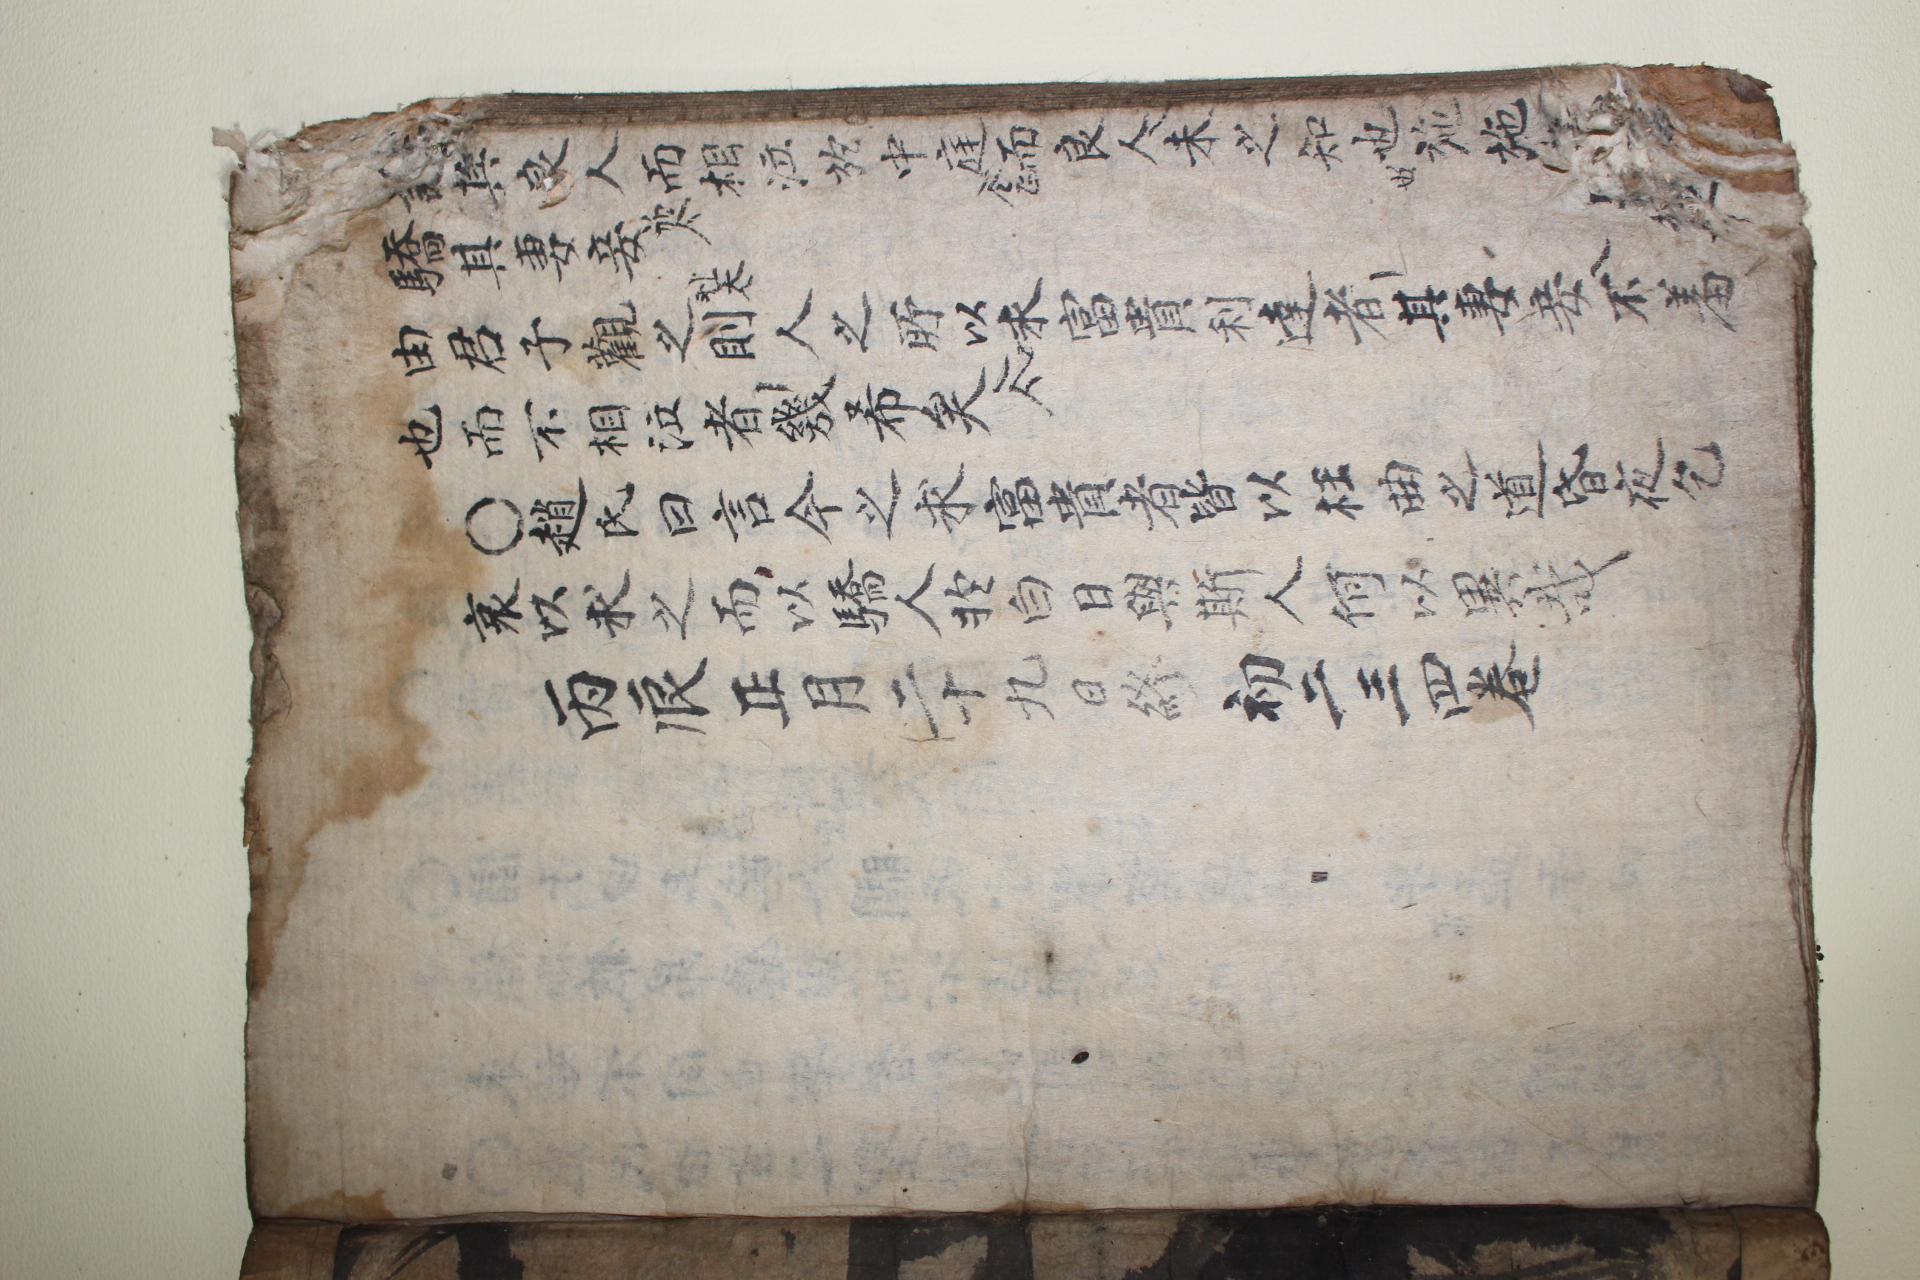 訕其良人而相泣於中庭而良人未之知也施施
驕其妻妾
由君子觀之則人之所以求富貴利達者其妻妾不羞
也而不相泣者幾希矣
○趙氏曰言今之求富貴者皆以枉曲之道昏夜乞
哀以求之而以驕人於白日與斯人何以異哉
丙辰正月二十九日終 初二三四卷